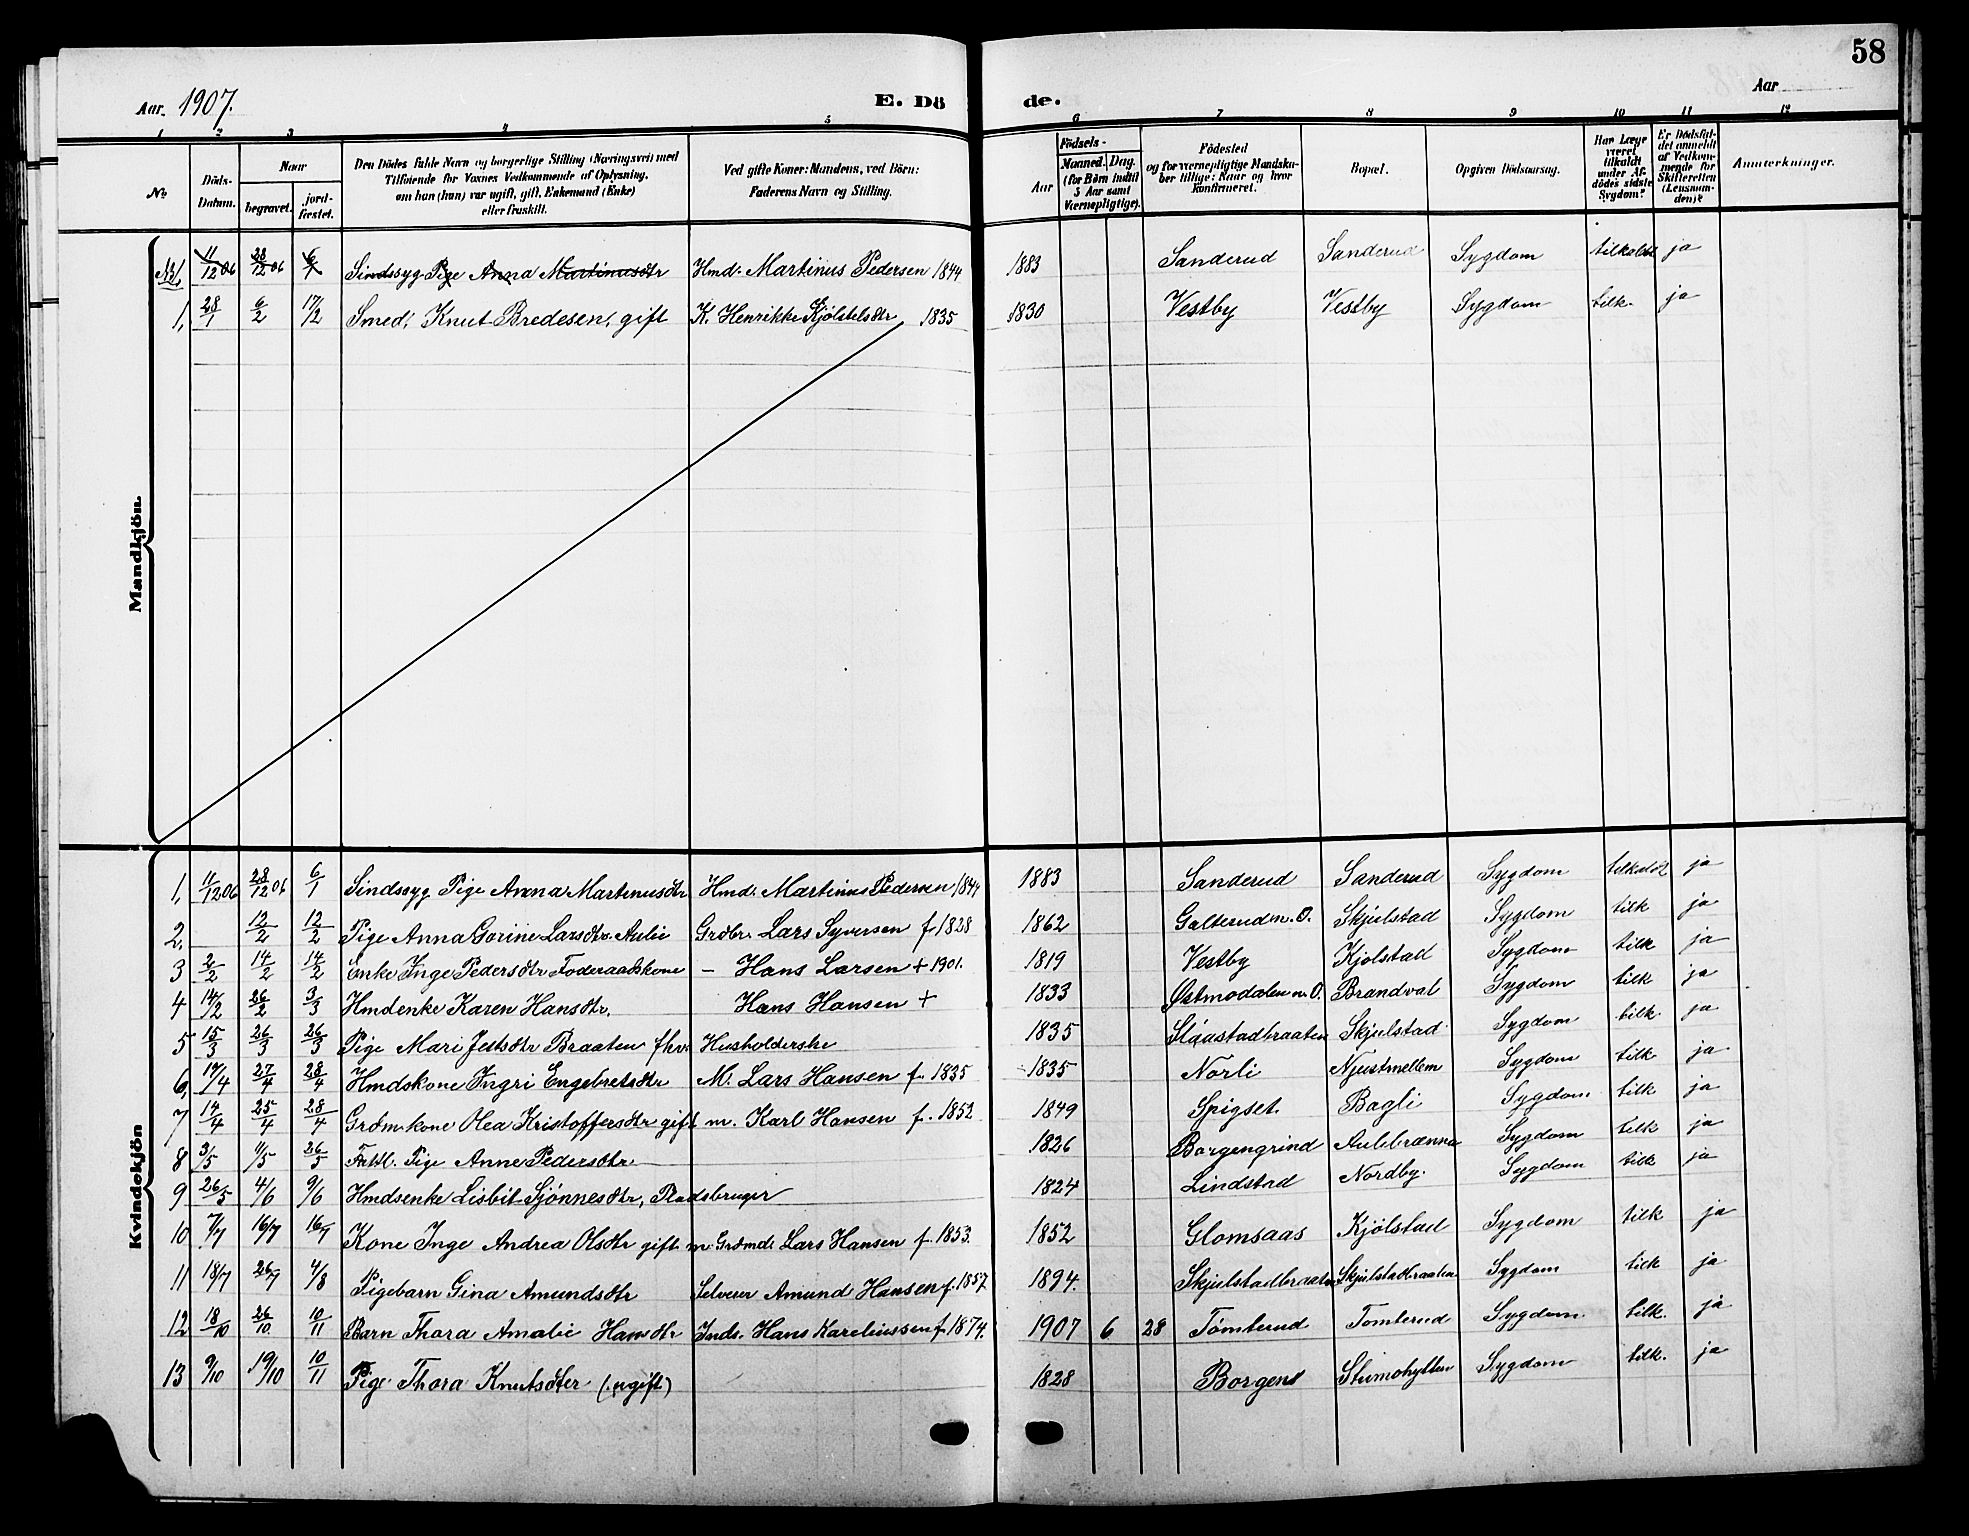 58
Aar. 1907.
E. Dö de.
Aar
1 2 3 4 5 6 7 8 9 10 11 12
No.
Döds-Datum.
Naar
begravet.
jord-fæstet.
Den Dödes fulde Navn og borgerlige Stilling (Næringsvei) med
Tilföiende for Voxnes Vedkommende af Oplysning,
om han (hun) var ugift, gift, Enkemand (Enke)
eller fraskilt.
Ved gifte Koner: Mandens, ved Börn:
Faderens Navn og Stilling.
Födsels-
Aar
Maaned. Dag.
(for Børn indtil
5 Aar samt
Værnepligtige).
Födested
og for værnepligtige Mandskaber tillige: Naar og hvor
konfirmeret.
Bopæl.
Opgiven Dödsaarsag.
Har Læge
været
tilkaldt
under Afdödes sidste
Sygdom?
Er Dödsfaldet anmeldt
af Vedkommende for
Skifteretten
(Lensmanden)?
Anmerkninger.
Mandkjön.
11/12 06 28/12 06 6/1 Sindssyg Pige Anna Martinusdtr Hmd. Martinus Pedersen 1844 1883 Sanderud Sanderud Sygdom tilkaldt ja
1, 28/1 6/2 17/2 Smed, Knut Bredesen, gift K. Henrikke Kjölstelsdtr 1835 1830 Vestby Vestby Sygdom tilk. ja
Kvindekjön
1, 11/12 06 28/12 06 6/1 Sindssyg Pige Anna Martinusdtr Hmd. Martinus Pedersen 1844 1883 Sanderud Sanderud Sygdom tilkaldt ja
2, 12/2 12/2 Pige Anna Gorine Larsdtr. Aulie Grdbr. Lars Syversen f 1828 1862 Galterud n. O. Skjulstad Sygdom tilk ja
3 2/2 14/2 14/2 Enke Inge Pedersdtr Føderaadskone — Hans Larsen + 1901. 1819 Vestby Kjolstad Sygdom tilk ja
4 14/2 26/2 3/3 Hmdenke Karen Hansdtr. Hans Hansen + 1833 Østmodalen n. O. Brandval Sygdom tilk ja
5 15/3 26/3 26/3 Pige Mari Jensdtr Braaten fhv. Husholderske 1835 Slaastadbraaten Skjulstad Sygdom tilk. ja
6, 14/4 27/4 28/4 Hmdskone Ingri Engebretsdtr M. Lars Hansen f. 1835 1835 Norli Njustmellem Sygdom tilk ja
7 14/4 25/4 28/4 Grdmkone Olea Kristoffersdtr gift m. Karl Hansen f. 1852 1849 Spigset Bagli Sygdom tilk ja
8 3/5 11/5 26/5 Fattl. Pige Anne Pedersdtr. 1826 Borgengrind Aulibrænna Sygdom tilk ja
9 26/5 4/6 9/6 Hmdsenke Lisbit Sjønnesdtr, Pladsbruger 1824 Lindstad Nordby. Sygdom tilk ja
10 7/7 16/7 16/7 Kone Inge Andrea Olsdtr gift m. Grdmd. Lars Hansen f. 1853. 1852 Glomsaas Kjölstad Sygdom tilk ja
11 18/7 26/7 4/8 Pigebarn Gina Amundsdtr Selveier Amund Hansen f. 1857 1894. Skjulstadbraaten Skjulstadbraaten Sygdom tilk ja
12 18/10 26/10 10/11 Barn Thora Amalie Hansdtr Inds. Hans Kareliussen f. 1874. 1907 6 28 Tömterud Tomterud Sygdom tilk. ja
13 9/10 19/10 10/11 Pige Thora Knutsdtter (ugift) 1828 Borgen Sygdom tilk. ja